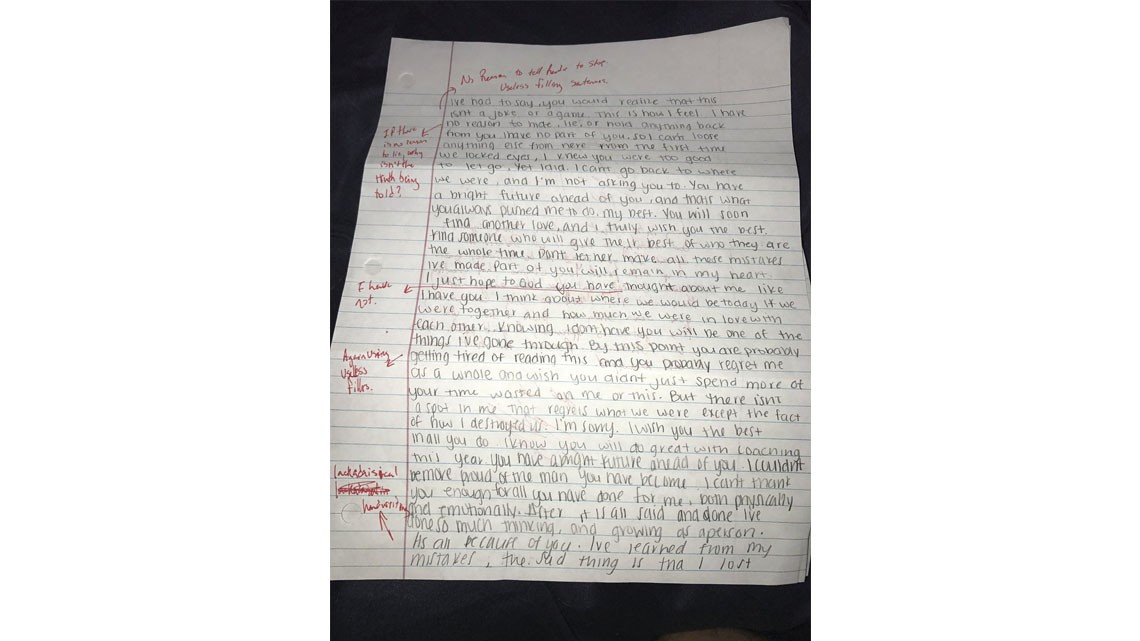 No Reason to tell reader to stop
Useless filling sentence
ive had to say, you would realize that this
isnt a joke or a game. This is how I feel. I have
no reason to hide, lie, or hold anything back
from you. I have no part of you, so I cant loose
anything else from here. From the first time
we locked eyes, I knew you were too good
to let go, Yet I did. I cant go back to where
we were, and I'm not asking you to. You have
a bright future ahead of you, and thats what
you always pushed me to do, my best. You will soon
find another love, and I truly wish you the best.
Find someone who will give their best of who they are
the whole time. Dont let her make all these mistakes
ive made. Part of you will remain in my heart.
I just hope to God you have thought about me like
I have you. I think about where we would be today if we
were together and how much we were in love with
each other. Knowing I dont have you will be one of the
things I've gone through. By this point you are probably
getting tired of reading this and you probably regret me
as a whole and wish you didnt just spend more of
your time wasted on me or this. But there isnt
a spot in me that regrets what we were except the fact
of how I destroyed us. I'm sorry. I wish you the best
in all you do. I know you will do great with coaching
this year. You have a bright future ahead of you. I couldnt
be more proud of the man you have become. I cant thank
you enough for all you have done for me, both physically
and emotionally. After it is all said and done Ive
done so much thinking, and growing as a person.
Its all because of you. I've learned from my
mistakes, the sad thing is tha I lost
If there
is no reason
to lie, why
isn't the
truth being
told?
I have
not.
Again using
useless
fillers.
lackadaisical
handwriting